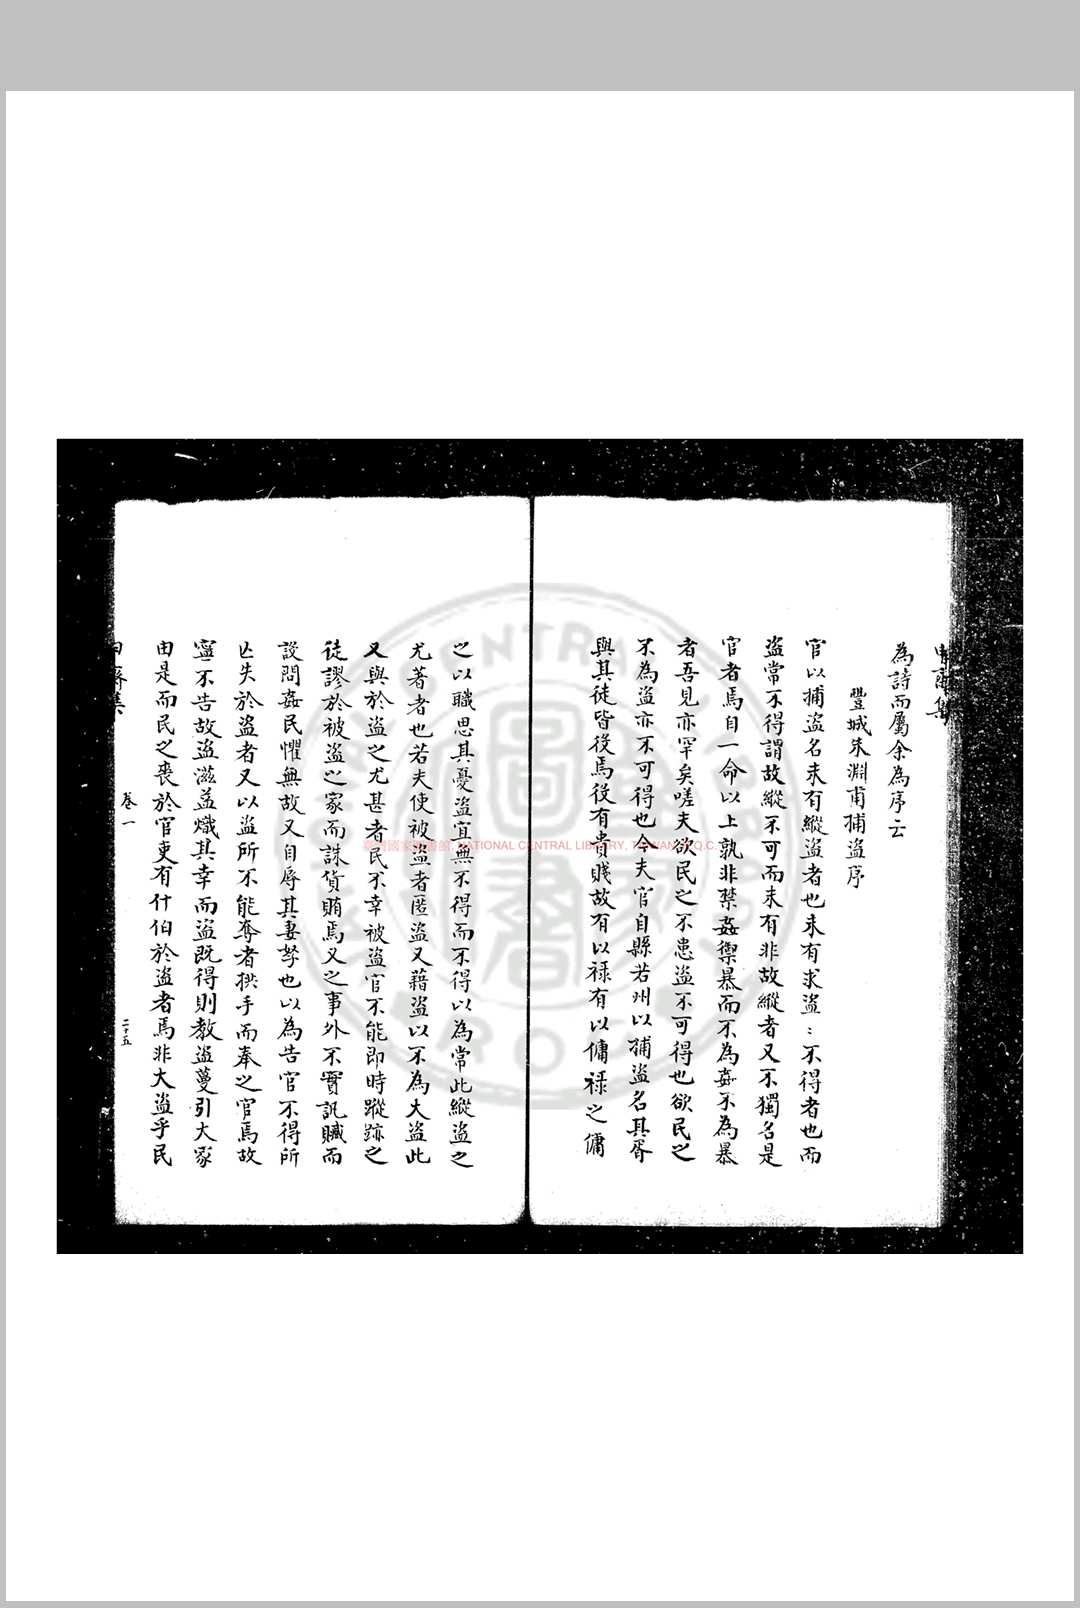 申齋集
為詩而屬余為序云
豐城朱淵甫捕盜序
官以捕盜名未有縱盜者也未有求盜〻不得者也而
盜常不得謂故縱不可而未有非故縱者又不獨名是
官者焉自一命以上孰非禁姦禦暴而不為姦不為暴
者吾見亦罕矣嗟夫欲民之不患盜不可得也欲民之
不為盜亦不可得也今夫官自縣若州以捕盜名其胥
與其徒皆役焉役有貴賤故有以祿有以傭祿之傭
之以職思其憂盜宜無不得而不得以為常此縱盜之
尤著者也若夫使被盜者匿盜又藉盜以不為大盜此
又與於盜之尤甚者民不幸被盜官不能即時蹤跡之
徒謬於被盜之家而誅貨賄焉又之事外不實訊贓而
設問姦民懼無故又自辱其妻孥也以為告官不得所
亡失於盜者又以盜所不能奪者拱手而奉之官焉故
寧不告故盜滋益熾其幸而盜既得則教盜蔓引大家
由是而民之喪於官吏有什伯於盜者焉非大盜乎民
申齋集
卷一
二十五
臺灣國家圖書館, NATIONAL CENTRAL LIBRARY, TAIWAN (R.O.C.)
NATIONAL CENTRAL LIBRARY
R.O.C.